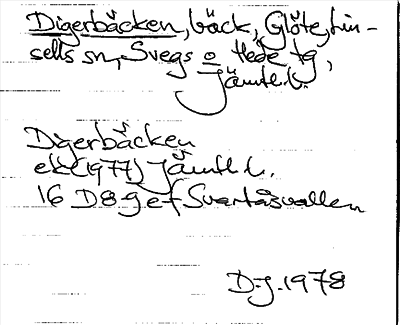 Digerbäcken, bäck, Glöte, Lin-
sells sn, Svegs o Hede tg,
Jämtl. l.
Digerbäcken
ek (1977) Jämtl. l.
16 D 8 g ef Svartåsvallen
D.J. 1978